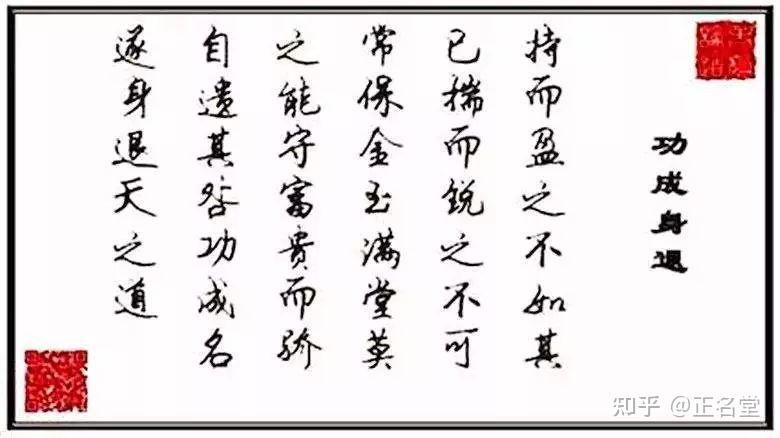 功成身退
持而盈之不如其
已揣而銳之不可
常保金玉满堂莫
之能守富貴而骄
自遺其咎功成名
遂身退天之道
知乎 @正名堂